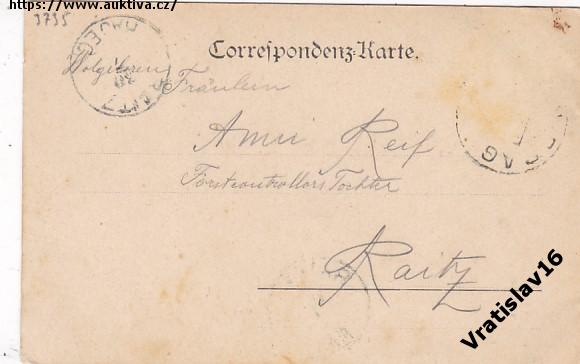 https://www.auktiva.cz/
3795
Correspondenz-Karte.
Wolgeboren
Fräulein
Ami Reif
Forstcontrollors Tochter
Raitz
RAITZ
Vratislav16